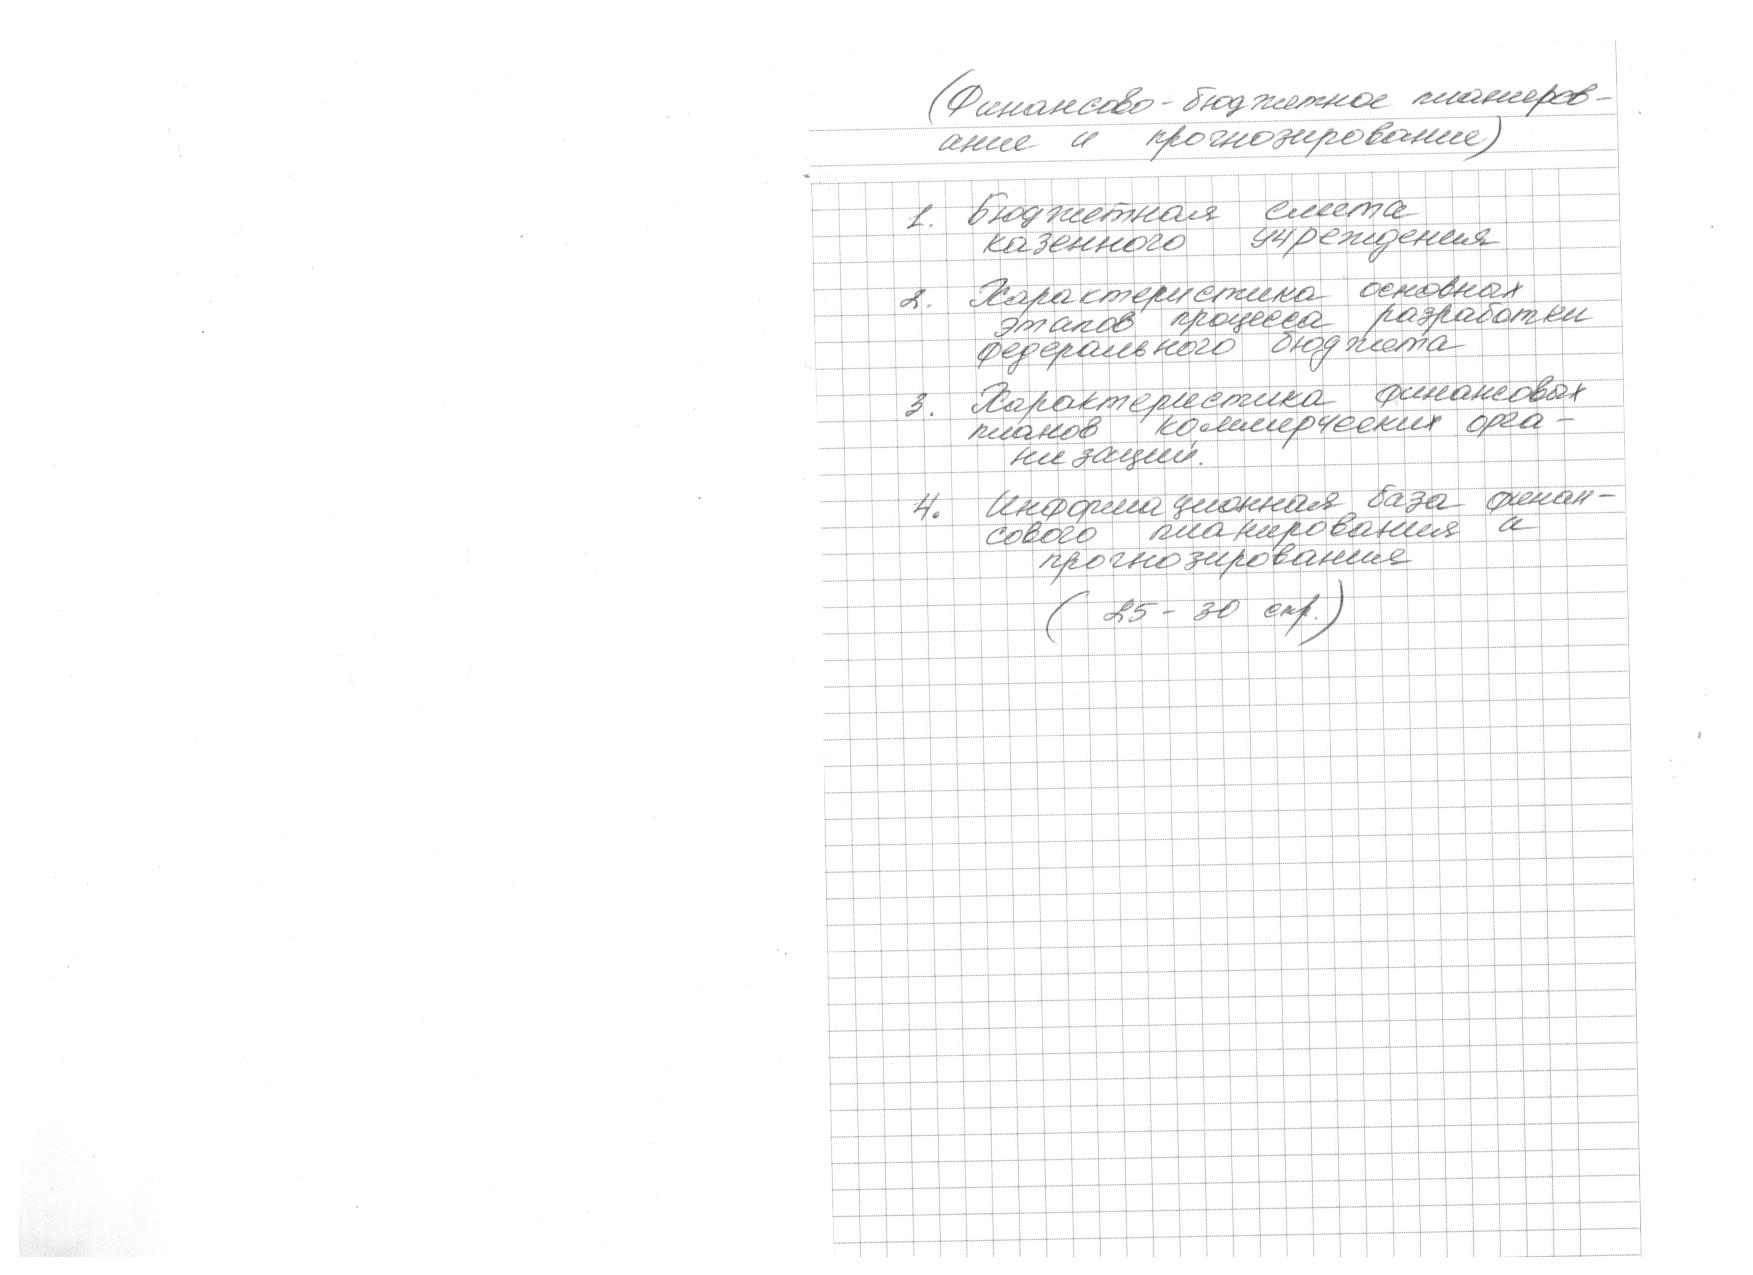 (Финансово-бюджетное планиров-
ание и прогнозирование)
1. Бюджетная смета
казенного учреждения
2. Характеристика основных
этапов процесса разработки
федерального бюджета
3. Характеристика финансовых
планов коммерческих орга-
низаций.
4. Информационная база финан-
сового планирования и
прогнозирования
(25-30 стр.)